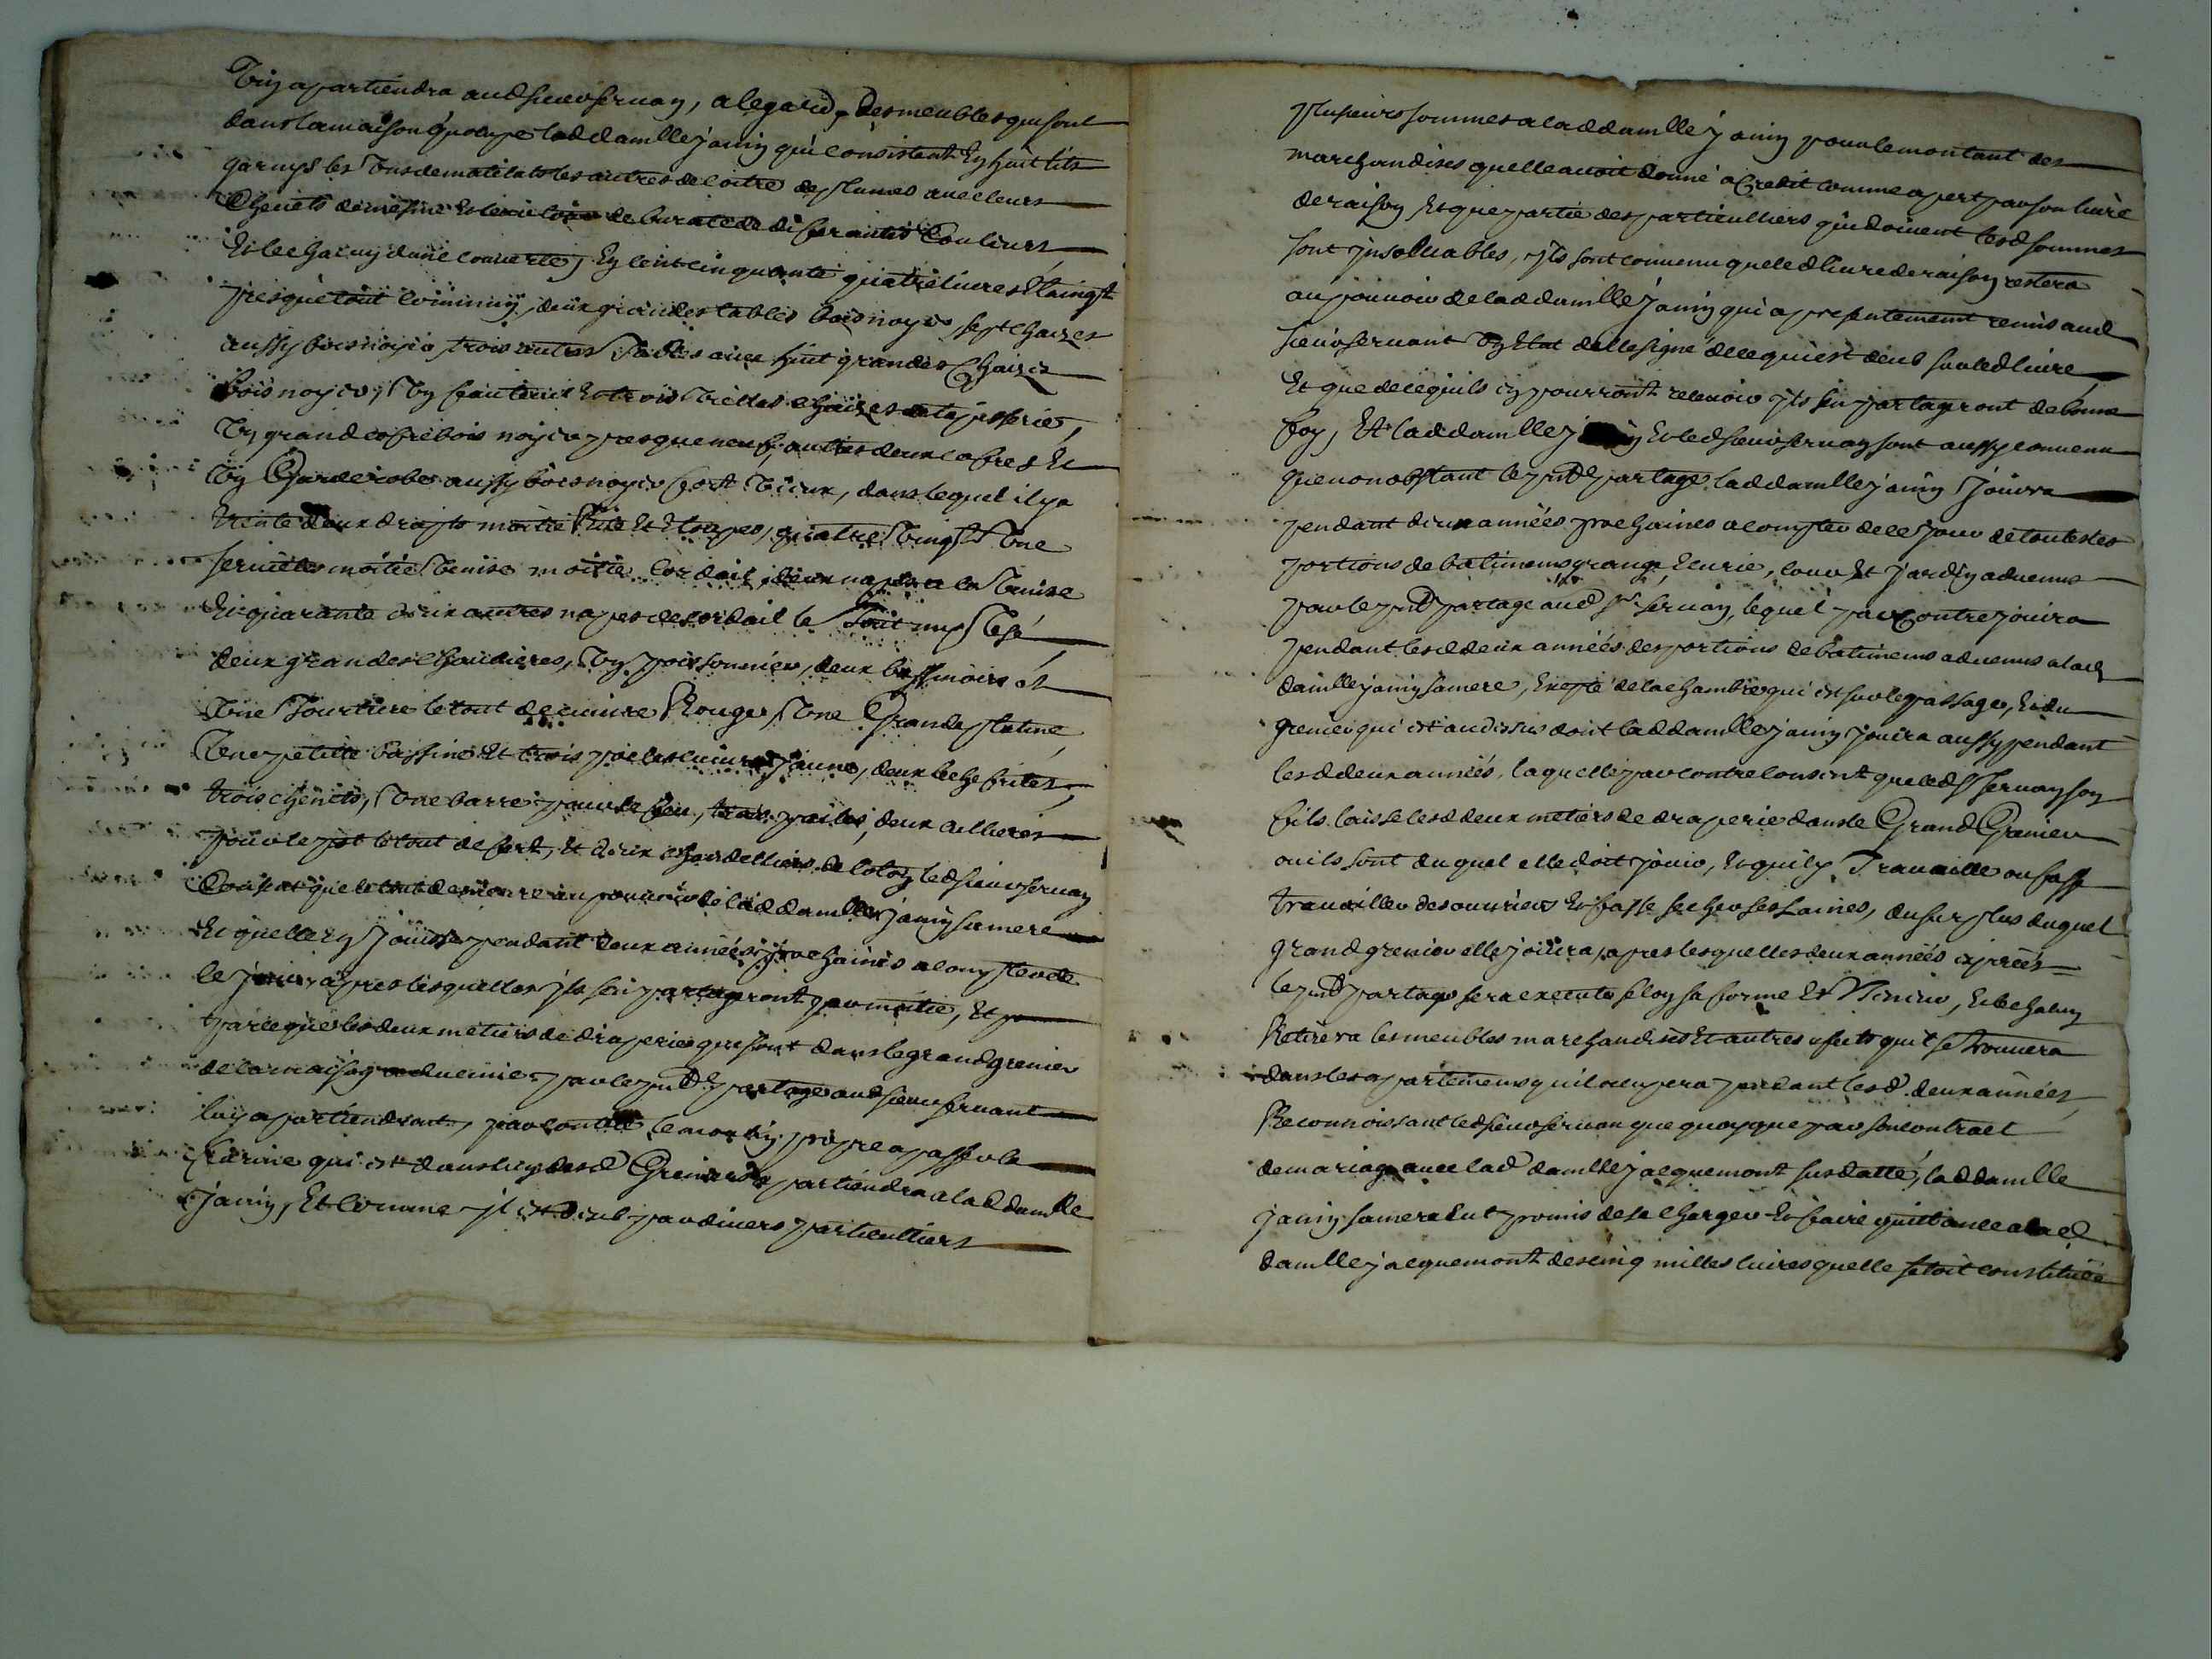 Luy apartiendra aud sieur servan, a legard, des meubles qui sont
dans la maison quocupe lad damlle janin qui consistent En huit lits
garnys les uns de matelats les autres de coitre de plumes avec leurs
Chevets de mesme Et leur tour de burate de diferantes Couleurs
Et les garny dune couverte, En cent cinquante quatre livres Etaingt
presque tout commung, deux grandes tables bois noyer sept chaizes
aussy bois noyer trois autres tables avec huit grandes Chaizes
bois noyer, Un fauteuil Et trois vielles chaizes a tapisserie,
Un grand cofre bois noyer presque neuf, autres deux cofres Et
Un Garderobes aussy bois noyer fort vieux, dans lequel il y a
trente deux draps moitié Rite Et Etoupes, quatre vingt Une
serviettes moitié Venise moitié Cordail, deux napes a la Venise
Et quarante deux autres napes de cordail le tout uzé,
deux grandes Chaudieres, Un poissonnier, deux bassinoires et
Une Tourtiere le tout de cuivre Rouge, Une Grande platine,
Une petite bassine Et trois poeles cuivre jaune, deux leche frites,
trois chenets, Une barre pour le feu, trois pailes, deux
pour le pot le tout de fert, Et deux chandelliers de loton, led sieur servan
Consent que le tout demeure au pouvoir de lad damlle janin sa mere
Et quelle en jouisse pendant deux années prochaines a compter de
ce jour, apres lesquelles ils sen partageront par moitié, Et
parce que les deux metiers de draperies qui sont dans le grand grenier
de la maison advenue par le pnt partage aud sieur servant
luy apartiendront, par contre le moulin propre a passer la
farine qui est dans lun desd Greniers apartiendra a lad damlle
janin, Et comme il est deub par divers particulliers
plusieurs sommes a lad damlle janin pour le montant des
marchandises quelle avoit donné a Credit comme apert par son livre
de raison Et que partie des particulliers qui doivent lesd sommes
sont insolvables, ils sont convenu que led livre de raison restera
au pouvoir de lad damlle janin qui a presentement remis aud
sieur servant Un Etat delle signé de ce qui est deub sur led livre,
Et que de ce quils en pourront recevoir ils sen partageront de bonne
foy, Et lad damlle janin Et led sieur servan sont aussy convenu
que nonobstant le pnt partage lad damlle janin jouira
pendant deux années prochaines a compter de ce jour de toutes les
portions de batimens grange, Ecurie, cour Et jardin advenues
par le pnt partage aud sr servan, lequel par Contre jouira
pendant lesd deux années des portions de batimens advenues a lad
damlle janin sa mere, Exepté de la chambre qui est sur le passage, Et du
grenier qui est au dessus dont lad damlle janin jouira aussy pendant
lesd deux années, laquelle par contre consent que led sr servan son
fils laisse lesd deux metiers de draperie dans le Grand Grenier
ou ils sont duquel elle doit jouir, Et quil y Travaille ou fasse
travailler des ouvriers Et fasse secher ses Laines, du surplus duquel
grand grenier elle jouira, apres lesquelles deux années expirées
le pnt partage sera executé selon sa forme Et Teneur, Et chacun
Retirera les meubles marchandises Et autres efects quil se trouvera
dans les apartemens quil ocupera pendant lesd. deux années,
Reconnoissant led sieur servan que quoyque par son contract
de mariage avec lad damlle jacquemont susdatté, lad damlle
janin sa mere Eut promis de se charger Et faire quittance a lad
damlle jacquemont des cinq milles livres quelle setoit constituée